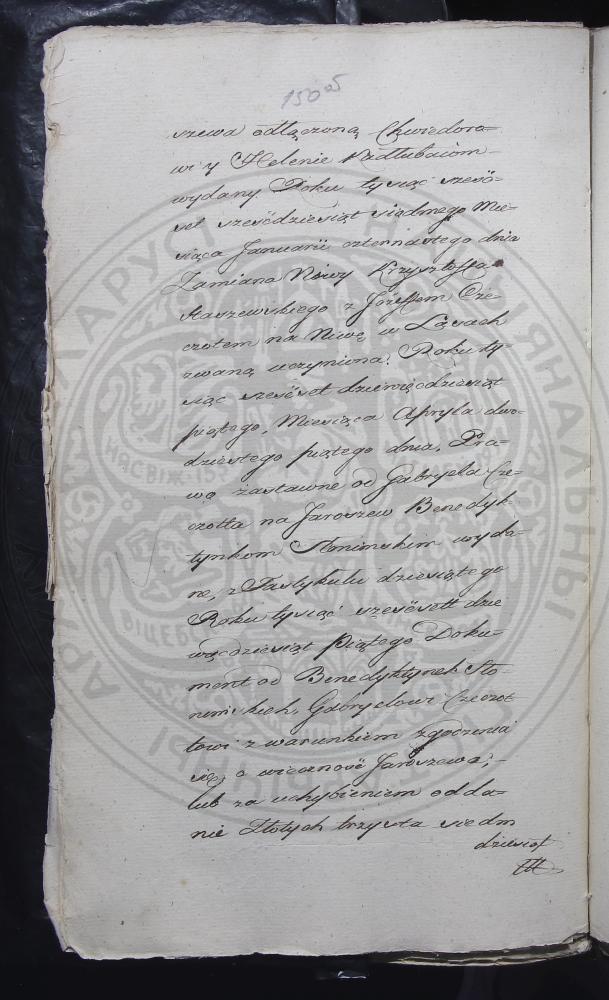 1505
szewa odłączoną Chwiedora=
wi y Helenie Kadłubaiom
wydany. Roku tysiąc sześć=
set sześćdziesiąt siudmego Mie=
siąca Januarii czternastego dnia
Zamiana Niwy Krzysztoffa
Staszewskiego z Jozeffem Cze=
czotem na Niwę w Ląsach
zwaną uczyniona. Roku ty=
siąc sześćset dziewięćdziesiąt
piątego, Miesiąca Apryla dwo=
dziestego piątego dnia, Pra=
wo zastawne od Gabryela Cze=
czotta na Jaroszew Benedyk=
tynkom Słonimskim wyda=
ne, z Fastykułu dziesiątego
Roku tysiąć sześćsott dzie
więdziesiąt Piątego Doku=
ment od Benedyktynek Sło=
nimskich, Gabryelowi Czeczot
towi z warunkiem zgodzenia
się, o wieczność Jaroszewa, -
lub za uchybieniem odda=
nie Złotych trzysta siedm
dziesiąt
НАЦЫЯНАЛЬНЫ
ГІСТАРЫЧНЫ
АРХІЎ БЕЛАРУСІ